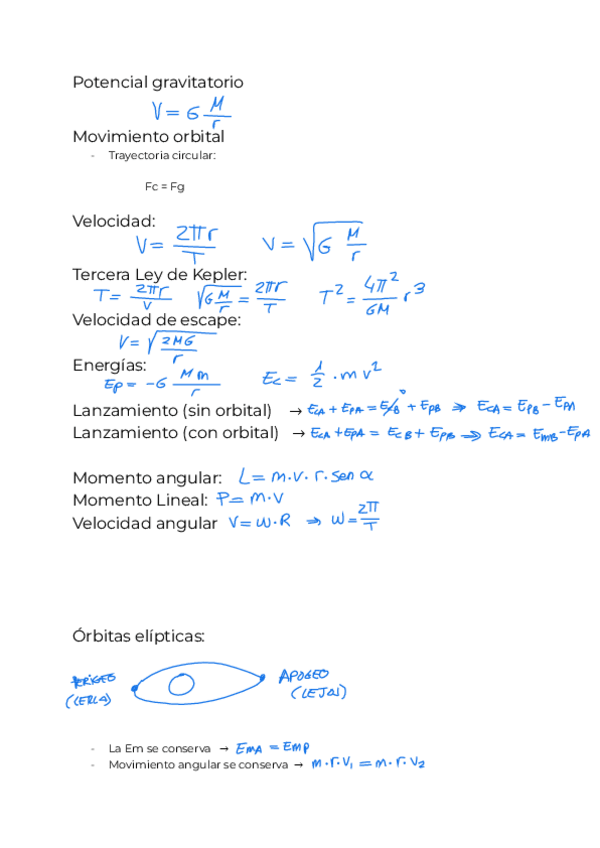 Potencial gravitatorio
V = G M/r
Movimiento orbital
- Trayectoria circular:
Fc = Fg
Velocidad:
V = 2πr/T    V = √(G M/r)
Tercera Ley de Kepler:
T = 2πr/V    √(G M/r) = 2πr/T    T² = 4π²/GM r³
Velocidad de escape:
V = √(2MG/r)
Energías:
Ep = -G Mm/r    Ec = 1/2 · m v²
Lanzamiento (sin orbital) → EcA + EpA = EcB⁰ + EpB ⇒ EcA = EpB - EpA
Lanzamiento (con orbital) → EcA + EpA = EcB + EpB ⇒ EcA = EmB - EpA
Momento angular: L = m·v·r·sen α
Momento Lineal: P = m·v
Velocidad angular V = w·R ⇒ w = 2π/T
Órbitas elípticas:
PERIGEO
(CERCA)
APOGEO
(LEJOS)
- La Em se conserva → EmA = EmP
- Movimiento angular se conserva → m·r·V₁ = m·r·V₂